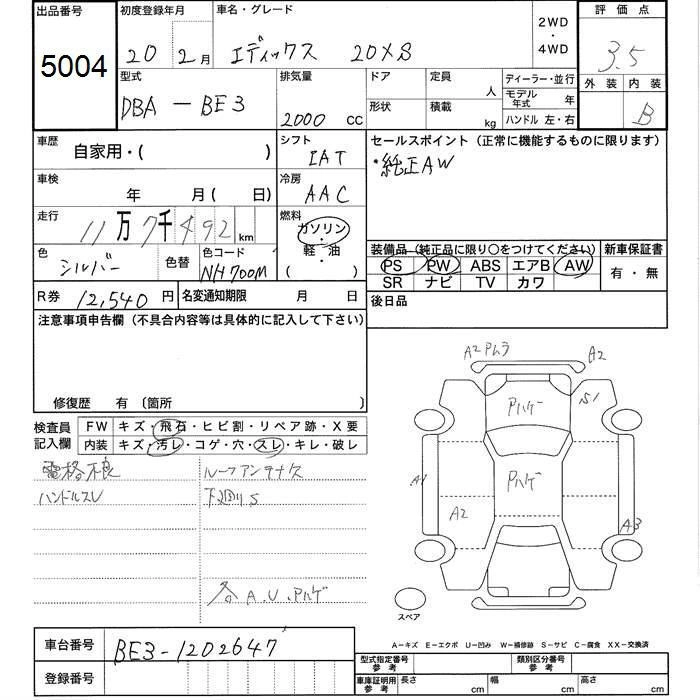 出品番号 初度登録年月 車名・グレード 2WD・4WD 評価点
5004 20 2月 エディックス 20XS 3.5
型式 排気量 ドア 定員 人 ディーラー・並行 外装 内装
DBA-BE3 2000 cc 形状 積載 kg モデル年式 年 B
ハンドル 左・右
車歴 自家用・( ) シフト IAT セールスポイント (正常に機能するものに限ります)
・純正AW
車検 年 月( 日) 冷房 AAC
走行 11万7千492km 燃料 ガソリン・軽・油 ( )
色 シルバー 色替 色コード NH700M
装備品 (純正品に限り○をつけてください) 新車保証書
PS PW ABS エアB AW 有・無
SR ナビ TV カワ
R券 12,540円 名変通知期限 月 日 後日品
注意事項申告欄 (不具合内容等は具体的に記入して下さい)
修復歴 有 〔箇所 〕
検査員記入欄 FW キズ・飛石・ヒビ割・リペア跡・X要
内装 キズ・汚レ・コゲ・穴・スレ・キレ・破レ
電格不良 ルーフアンテナ欠
ハンドルスレ 下廻りS
各A.U.Pハゲ
A2 Pムラ A2
Pハゲ S1
A1 Pハゲ
A2 A3
スペア
A-キズ E-エクボ U-凹み W-補修跡 S-サビ C-腐食 XX-交換済
車台番号 BE3-1202647
登録番号
型式指定番号 参考 類別区分番号 参考
車庫証明用 参考 長さ cm 幅 cm 高さ cm